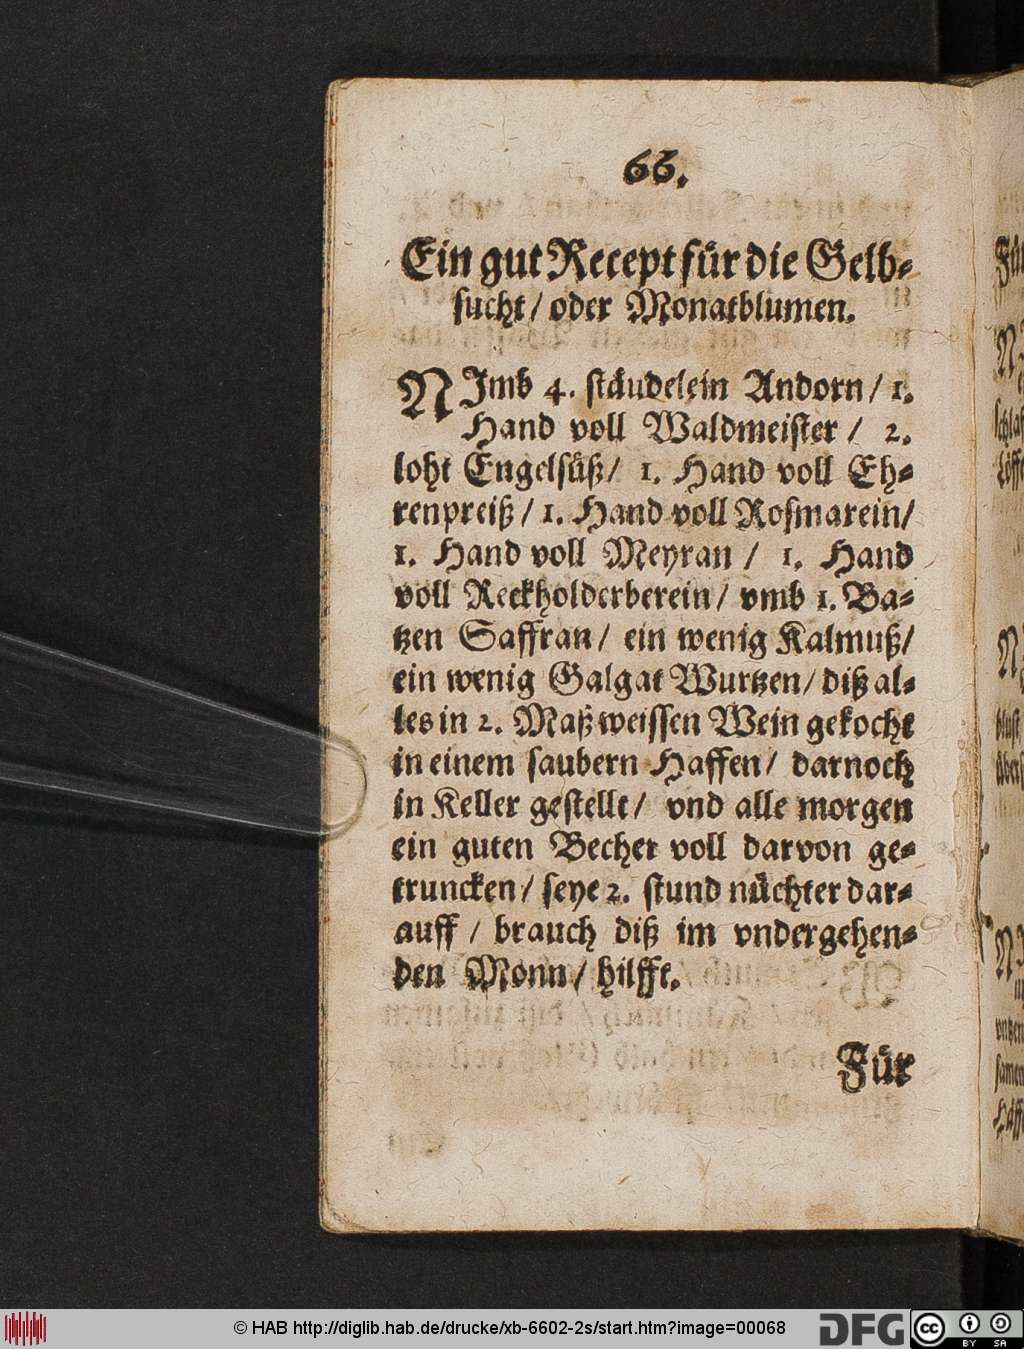 66.
Ein gut Recept für die Gelb-
sucht / oder Monatblumen.
NJmb 4. stäudelein Andorn / 1.
Hand voll Waldmeister / 2.
loht Engelsüß / 1. Hand voll Eh-
renpreiß / 1. Hand voll Rosmarein /
1. Hand voll Meyran / 1. Hand
voll Reckholderberein / vmb 1. Ba-
tzen Saffran / ein wenig Kalmuß /
ein wenig Galgat Wurtzen / diß al-
les in 2. Maß weissen Wein gekocht
in einem saubern Haffen / darnoch
in Keller gestellt / vnd alle morgen
ein guten Becher voll darvon ge-
truncken / seye 2. stund nüchter dar-
auff / brauch diß im vndergehen-
den Monn / hilfft.
Für
© HAB http://diglib.hab.de/drucke/xb-6602-2s/start.htm?image=00068
DFG
cc
BY SA